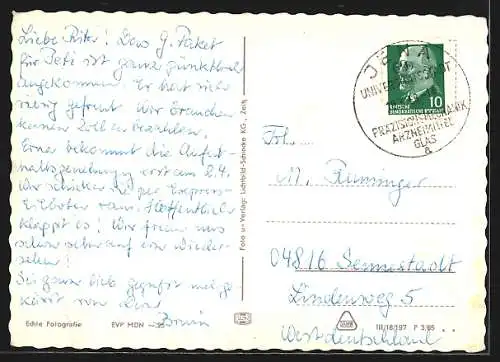 Liebe Rita! Das G. Paket
für Peti ist ganz pünktlich
angekommen. Er hat sich
riesig gefreut. Wir brauchen
keinen Zoll bezahlen.
Erna bekommt die Aufent-
haltsgenehmigung erst am 2.4.
Wir schicken sie per Express-
Eilboten raus. Hoffentlich
klappt es! Wir freuen uns
schon sehr auf ein Wieder-
sehen!
Sei ganz lieb gegrüsst und ge-
küsst von Deiner
Echte Fotografie EVP MDN
Foto u. Verlag: Lichtbild-Schincke KG., Zeitz
JENA
UNIVERSITÄTSSTADT
PRÄZISIONSMECHANIK
ARZNEIMITTEL
GLAS
a
DEUTSCHE
DEMOKRATISCHE REPUBLIK
10
Frl.
M. Runninger
04816 Sennestadt
Lindenweg 5
Westdeutschland
III/18/197 P 3/65